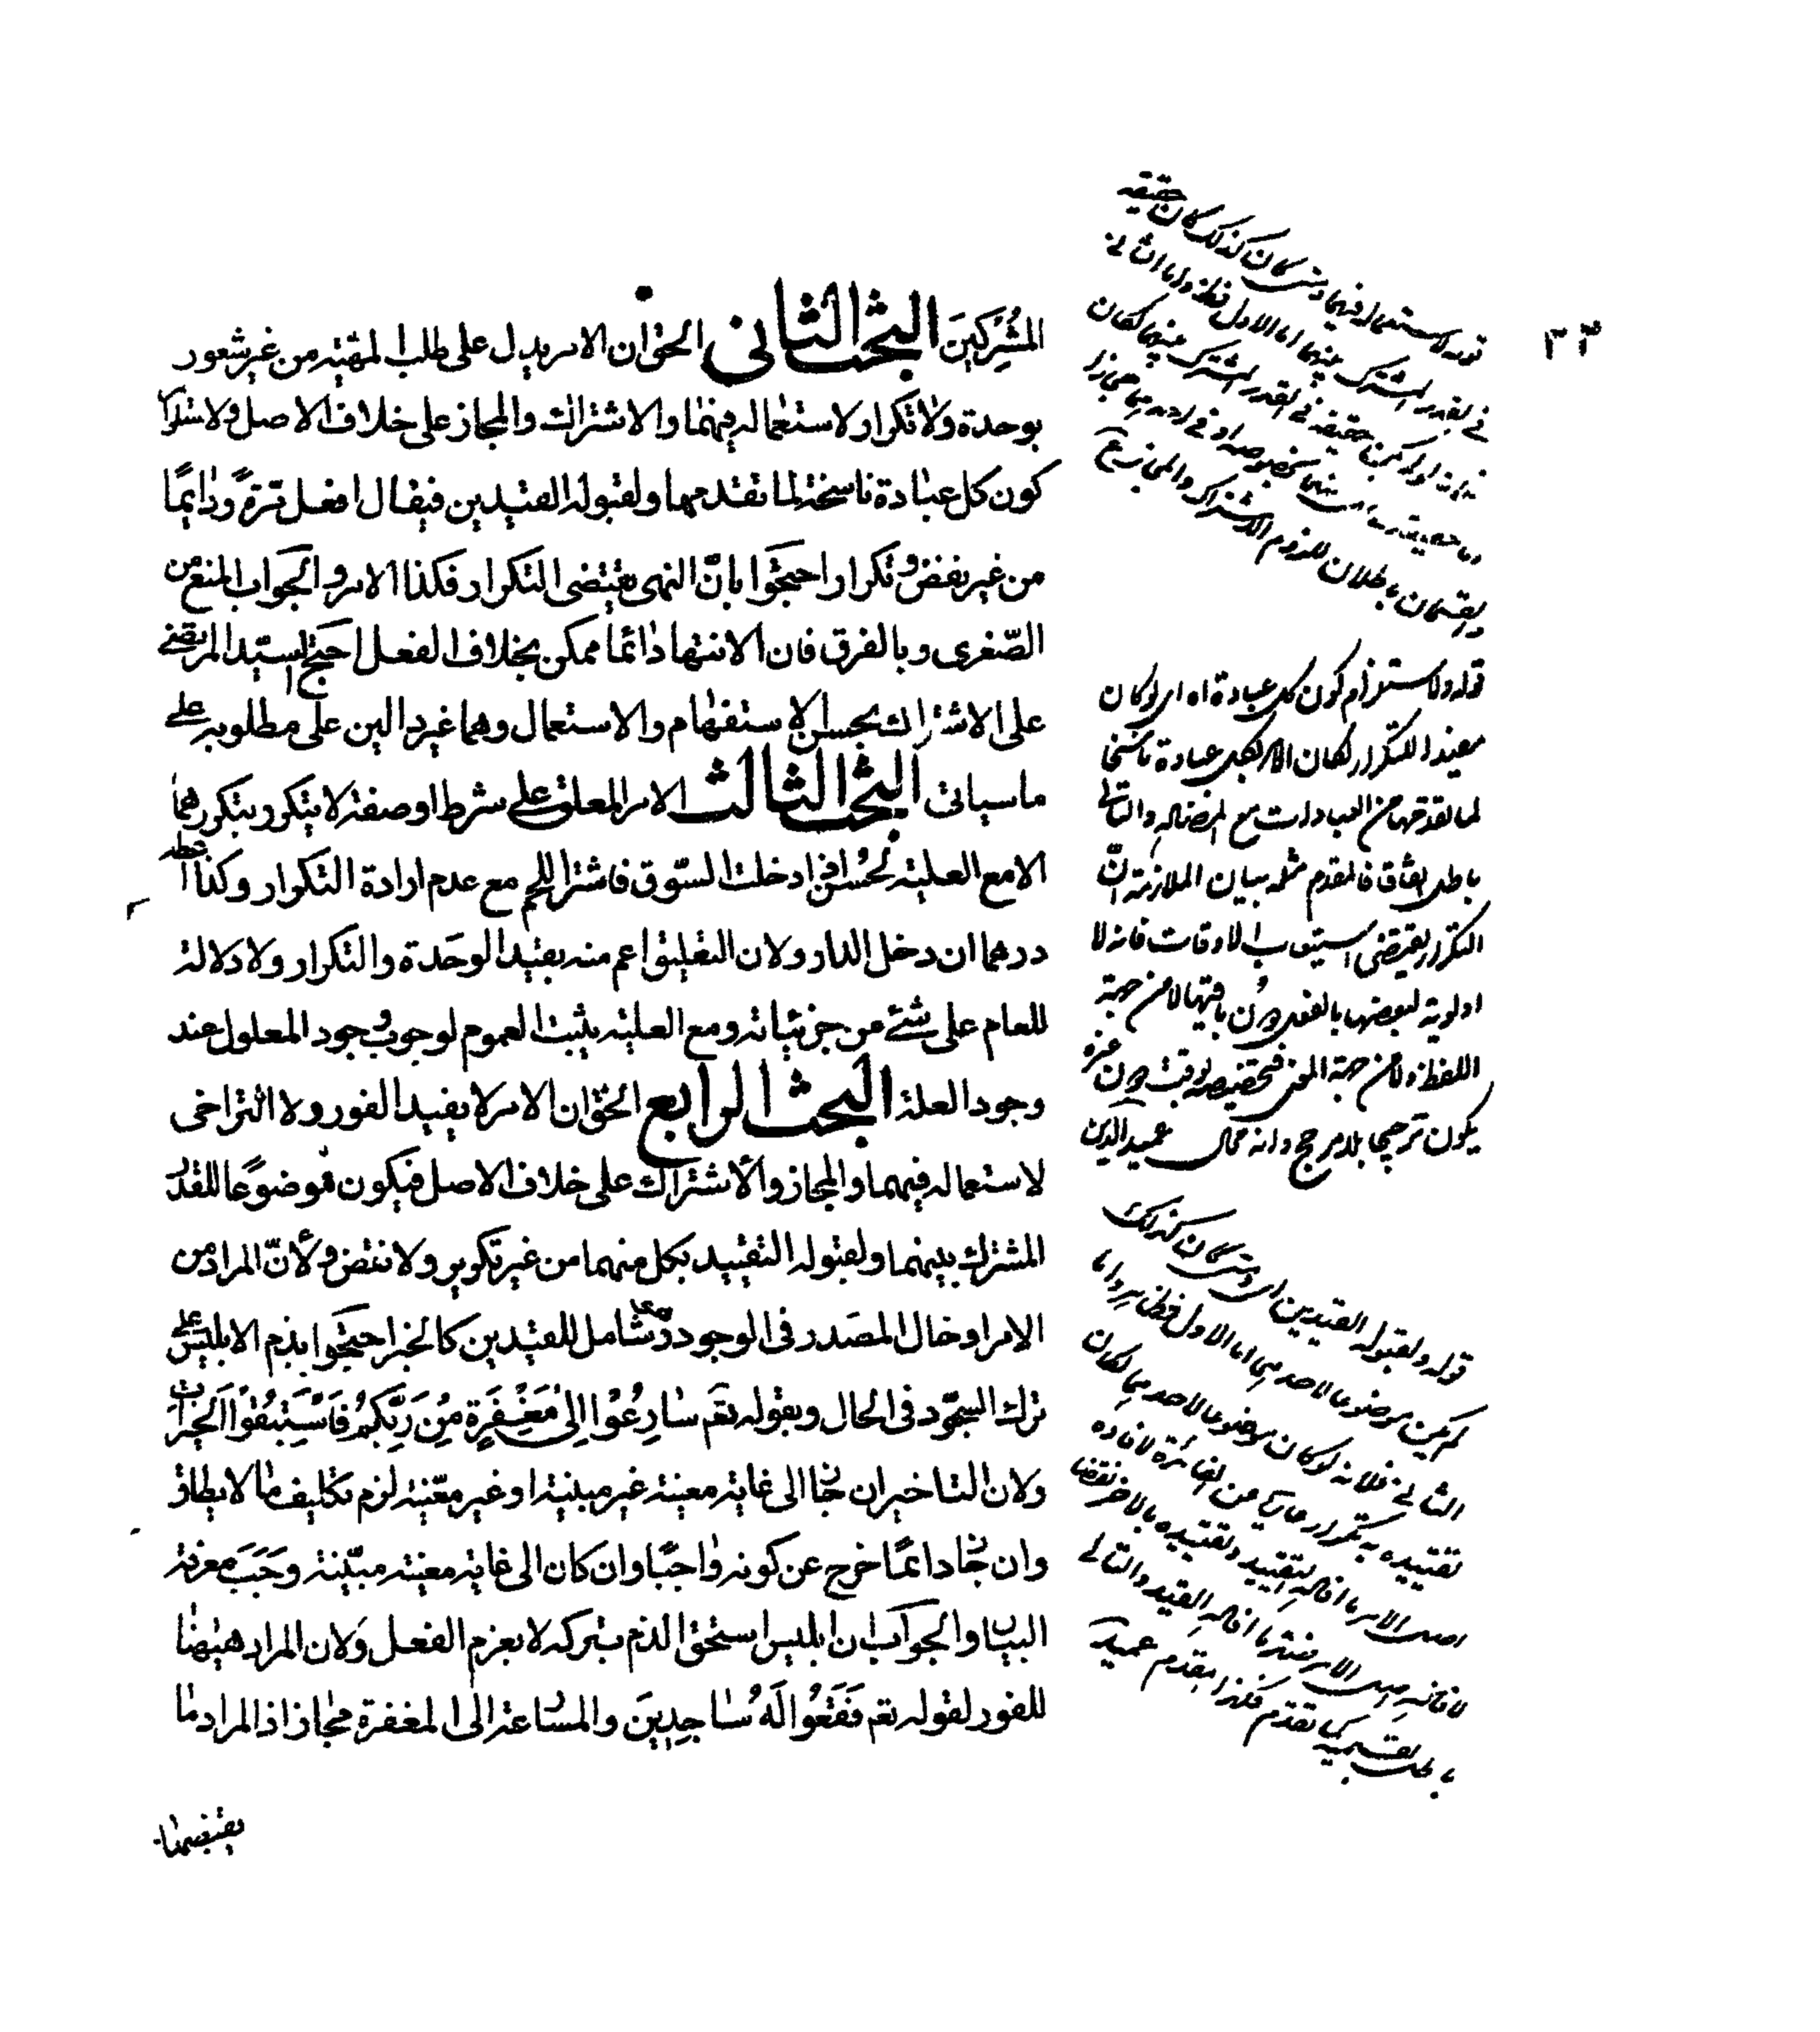 ٣٣
المُشْرِكِينَ البحث الثاني الحق ان الامر يدل على طلب المهية من غير شعور
بوحدة ولا تكرار ولاستعماله فيهما والاشتراك والمجاز على خلاف الاصل ولاستلزام
كون كل عبادة ناسخة لما تقدمها ولقبوله القيدين فيقال افعل مرة ودائمًا
من غير نقض وتكرار احتجّوا بانّ النهى يقتضى التكرار فكذا الامر والجواب المنع من
الصّغرى وبالفرق فان الانتهاء دائما ممكن بخلاف الفعل احتج السيّد المرتضى
على الاشتراك بحسن الاستفهام والاستعمال وهما غير دالين على مطلوبه على
ما سيأتى البحث الثالث الامر المعلق على شرط او صفة لا يتكرر بتكررهما
الا مع العلية لحُسن اذا دخلت السّوق فاشتر اللحم مع عدم ارادة التكرار وكذا اعطه
درهما ان دخل الدار ولان التعليق اعم منه بقيد الوحدة والتكرار ولا دلالة
للعام على شئ من جزئياته ومع العلية يثبت العموم لوجوب وجود المعلول عند
وجود العلة البحث الرابع الحق ان الامر لا يفيد الفور ولا التراخى
لاستعماله فيهما والمجاز والاشتراك على خلاف الاصل فيكون موضوعًا للقدر
المشترك بينهما ولقبوله التقييد بكل منهما من غير تكرير ولا نقض ولأنّ المراد من
الامر ادخال المصدر فى الوجود وهو شامل للقيدين كالخبر احتجّوا بذم الابليس على
ترك السجود فى الحال وبقوله تعم سَارِعُوْا اِلىٰ مَغْفِرَةٍ مِنْ رَبِّكُمْ فَاسْتَبِقُوْا الْخَيْرَاتِ
ولان التاخير ان جاز الى غاية معينة غير مبينة او غير معيّنة لزم تكليف ما لا يطاق
وان جاز دائمًا خرج عن كونه واجبًا وان كان الى غاية معينة مبيّنة وَجَبَ معرفة
البيان والجواب ان ابليس استحق الذم بتركه لا بعزم الفعل ولان المراد هيهنا
للفور لقوله تعم فَقَعُوا لَهُ سَاجِدِينَ والمسارعة الى المغفرة مجاز اذ المراد ما
يقتضيها
قوله لاستعماله فيهما ومتى كان كذلك كان حقيقة
فى القدر المشترك بينهما اما الاول فظ واما الثانى
حقيقة فى القدر المشترك بينهما لكان
بطلان للزوم الاشتراك والمجاز
قوله ولاستلزام كون كل عبادة اه اى لو كان
مفيدا للتكرار لكان الامر بكل عبادة ناسخا
لما تقدمها من العبادات مع المضادة والتالى
باطل اتفاقا فالمقدم مثله بيان الملازمة انّ
التكرار يقتضى استيعاب الاوقات فانه لا
اولوية لبعضها بالفعل دون باقيها لا من جهة
اللفظ ولا من جهة المعنى فتخصيصه بوقت دون غيره
يكون ترجيحا بلا مرجح وانه محال عميد الدين
قوله ولقبوله القيدين اه ومتى كان كذلك
لم يكن موضوعا لاحدهما اما الاول فظاهر واما
الثانى فلانه لو كان موضوعا لاحدهما لكان
تقييده به تكرارا عاريا عن الفائدة لافادة
اصل الامر افادة التقييد وتقييده بالاخر نقضا
كما تقدم فكذا المقدم عميد